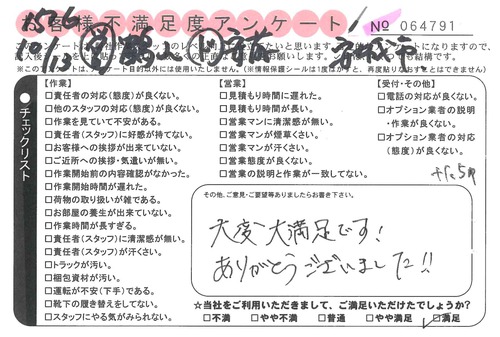 お客様不満足度アンケート
No 064791
※このアンケートは、アンケート目的以外には使用いたしません。(※情報保護シールは1度はがすと、再度貼りなおすことはできません)
チェックリスト
【作業】
□責任者の対応(態度)が良くない。
□他のスタッフの対応(態度)が良くない。
□作業を見ていて不安がある。
□責任者(スタッフ)に好感が持てない。
□お客様への挨拶が出来ていない。
□ご近所への挨拶・気遣いが無い。
□作業開始前の内容確認がなかった。
□作業開始時間が遅れた。
□荷物の取り扱いが雑である。
□お部屋の養生が出来ていない。
□作業時間が長すぎる。
□責任者(スタッフ)に清潔感が無い。
□責任者(スタッフ)が汗くさい。
□トラックが汚い。
□梱包資材が汚い。
□運転が不安(下手)である。
□靴下の履き替えをしてない。
□スタッフにやる気がみられない。
【営業】
□見積もり時間に遅れた。
□見積もり時間が長い。
□営業マンに清潔感が無い。
□営業マンが煙草くさい。
□営業マンが汗くさい。
□営業態度が良くない。
□営業の説明と作業が一致してない。
【受付・その他】
□電話の対応が良くない。
□オプション業者の説明・作業が良くない。
□オプション業者の対応(態度)が良くない。
その他、ご意見・ご要望等ありましたらお書き下さい。
大変大満足です!
ありがとうございました!!
☆当社をご利用いただきまして、ご満足いただけたでしょうか?
□不満 □やや不満 □普通 □やや満足 □満足